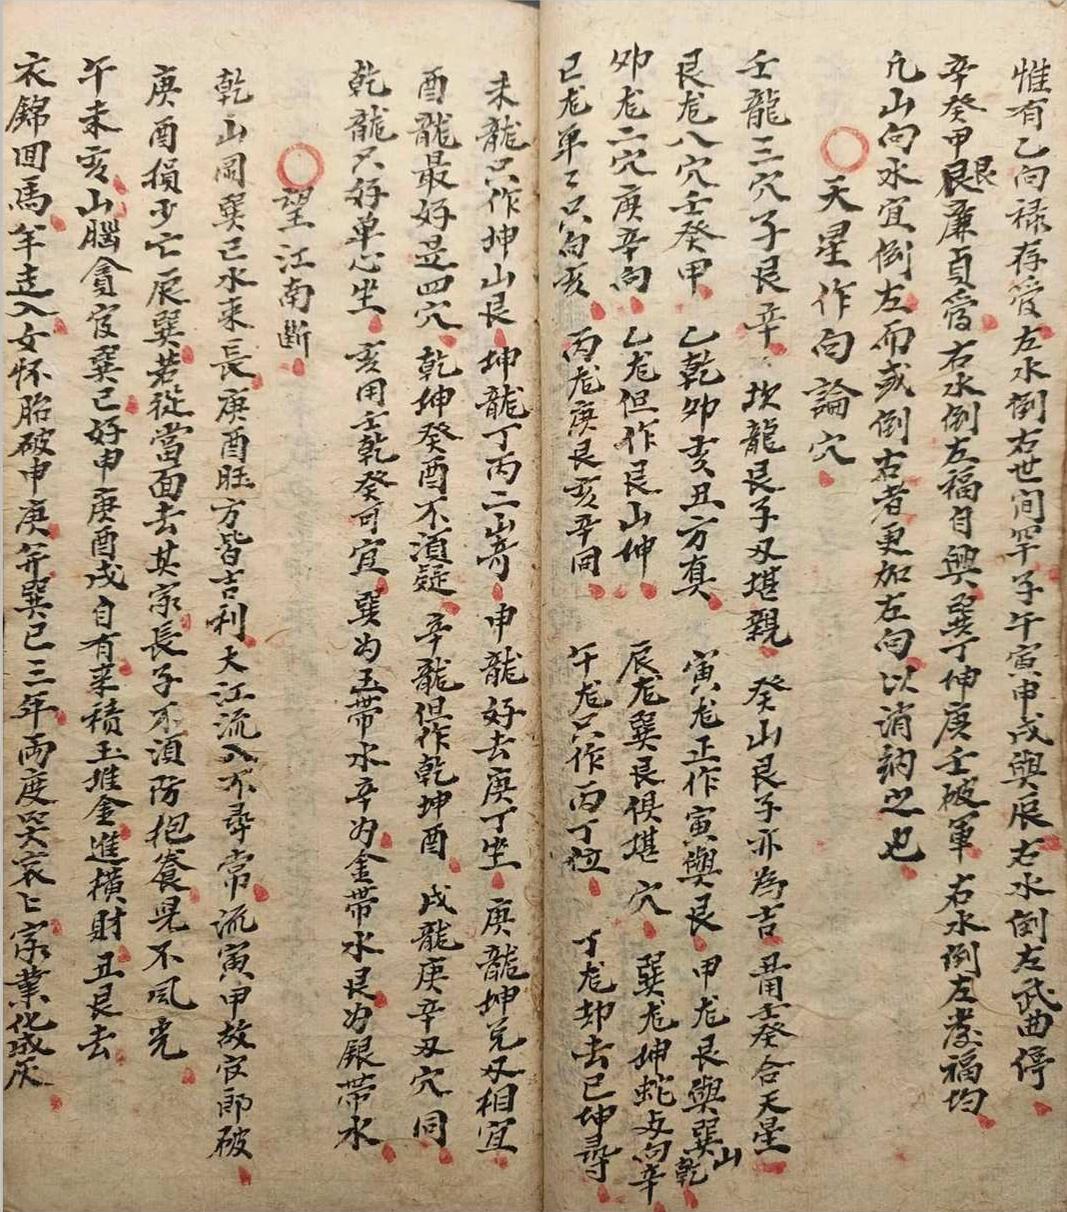 惟有乙向禄存管左水倒右世间罕子午寅申戌與辰右水倒左武曲停
辛癸甲艮廉貞爵右水倒左福自興巽丁伸庚壬破軍右水倒左發福均
凡山向水宜倒左而或倒右者更加左向以消納之也
天星作向論穴
壬龍三穴子艮辛坎龍艮子又堪親癸山艮子亦為吉丑用壬癸合天星
艮龙八穴壬癸甲乙乾卯亥丑方真寅龙正作寅與艮甲龙艮與巽乾山
卯龙二穴庚辛向乙龙但作艮山伸辰龙巽艮俱堪穴巽龙坤蛇亥向辛
巳龙单〻只向亥丙龙庚艮亥辛同午龙只作丙丁位丁龙却去巳坤尋
未龍只作坤山艮坤龍丁丙二山奇申龍好去庚丁坐庚龍坤兑又相宜
酉龍最好是四穴乾坤癸酉不須疑辛龍俱作乾坤酉戌龍庚辛又穴同
乾龍只好单心坐亥用壬乾癸可宜巽为玉带水辛为金带水艮为銀带水
望江南断
乾山岡巽巳水来長庚酉旺方皆吉利大江流入不尋常流寅甲故官郎破
庚酉損少亡辰巽若從當面去其家長子不須防抱養見不風光
午未亥山腦貪官巽巳好申庚酉戌自有来積玉堆金進横財丑艮去
衣錦回馬年走入女怀胎破申庚并巽巳三年兩度哭哀〻家業化成灰